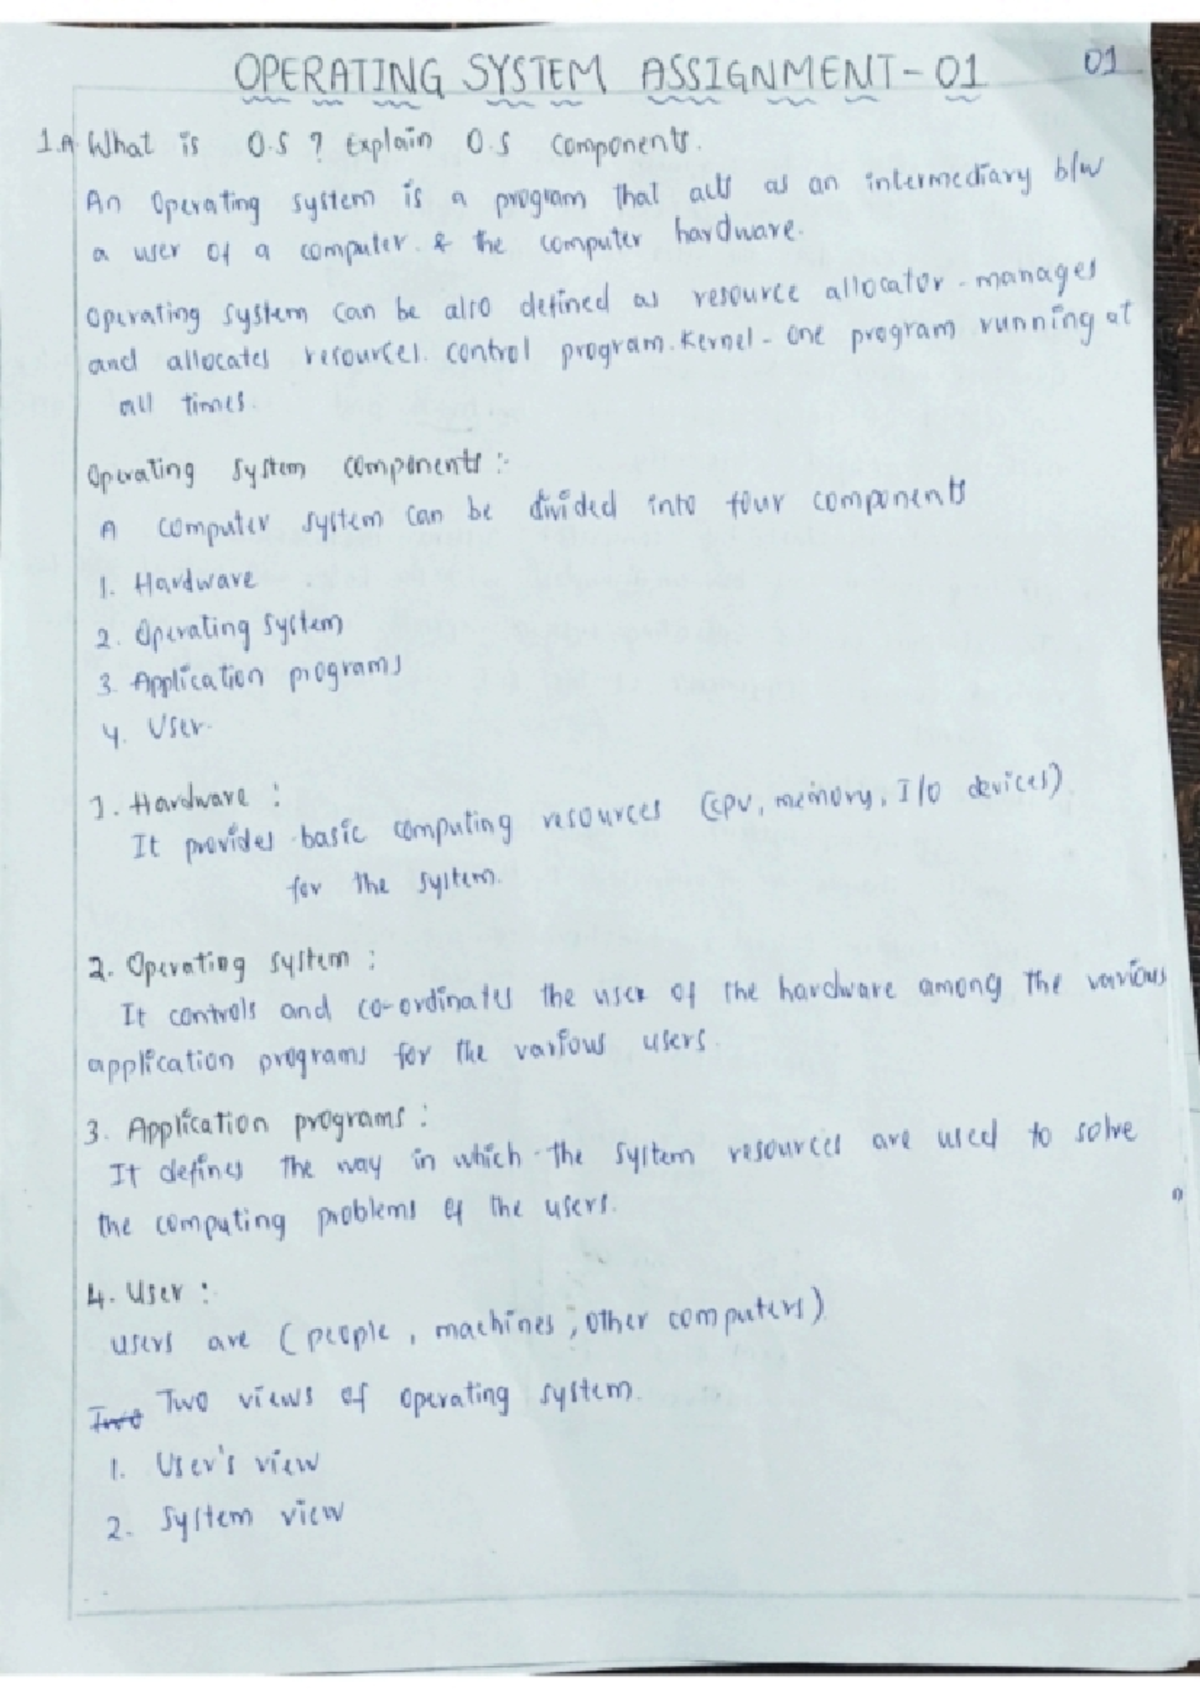 OPERATING SYSTEM ASSIGNMENT-01
01
1.A. What is O.S ? Explain O.S components.
An Operating system is a program that acts as an intermediary b/w
a user of a computer. & the computer hardware.
Operating system can be also defined as resource allocator - manages
and allocates resources. control program. Kernel - one program running at
all times.
Operating system components :-
A computer system can be divided into four components
1. Hardware
2. Operating system
3. Application programs
4. User.
1. Hardware :
It provides basic computing resources (CPU, memory, I/O devices)
for the system.
2. Operating system :
It controls and co-ordinates the user of the hardware among the various
application programs for the various users.
3. Application programs :
It defines the way in which the system resources are used to solve
the computing problems of the users.
4. User :
users are (people, machines, other computers).
Two Two views of operating system.
1. User's view
2. System view